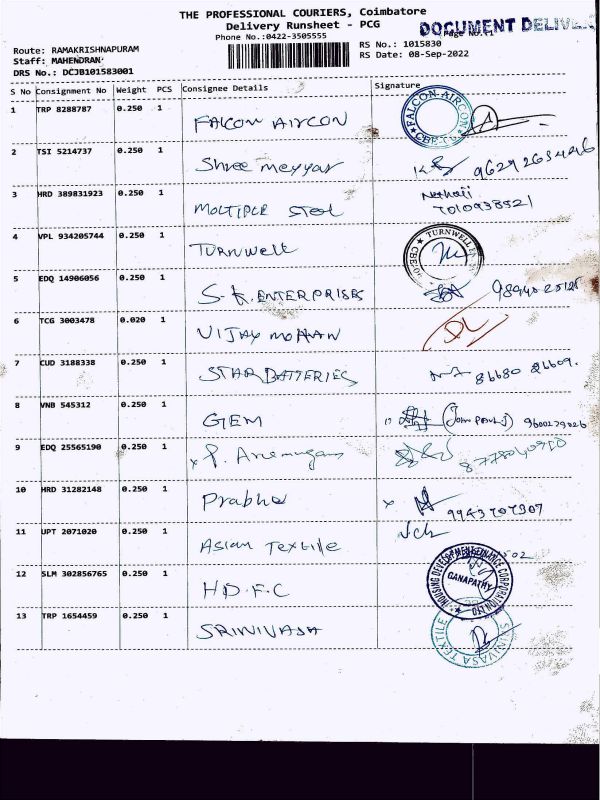 THE PROFESSIONAL COURIERS, Coimbatore
Delivery Runsheet - PCG
DOCUMENT DELIV
Phone No.:0422-3505555
Page No.:1
Route: RAMAKRISHNAPURAM
RS No.: 1015830
Staff: MAHENDRAN
RS Date: 08-Sep-2022
DRS No.: DCJB101583001
S No Consignment No Weight PCS Consignee Details Signature
1 TRP 8288787 0.250 1 FALCON AIRCON FALCON AIRCON CBE
2 TSI 5214737 0.250 1 Shree meyyar
3 HRD 389831923 0.250 1 MOLTIPLE Steel 7010938521
4 VPL 934205744 0.250 1 TURNWELL TURNWELL
5 EDQ 14906056 0.250 1 S.K. ENTERPRISES
6 TCG 3003478 0.020 1 VIJAY MOHAN
7 CUD 3188338 0.250 1 STAR BATTERIES 86680 26609.
8 VNB 545312 0.250 1 GEM (John Paul J) 9600279026
9 EDQ 25565190 0.250 1 x P. Aremugam
10 HRD 31282148 0.250 1 Prabha x 9943707307
11 UPT 2071020 0.250 1 ASIAN TEXTILE
12 SLM 302856765 0.250 1 H.D.F.C HOUSING DEVELOPMENT FINANCE CORPORATION LTD GANAPATHY
13 TRP 1654459 0.250 1 SRINIVASA SRINIVASA TEXTILE